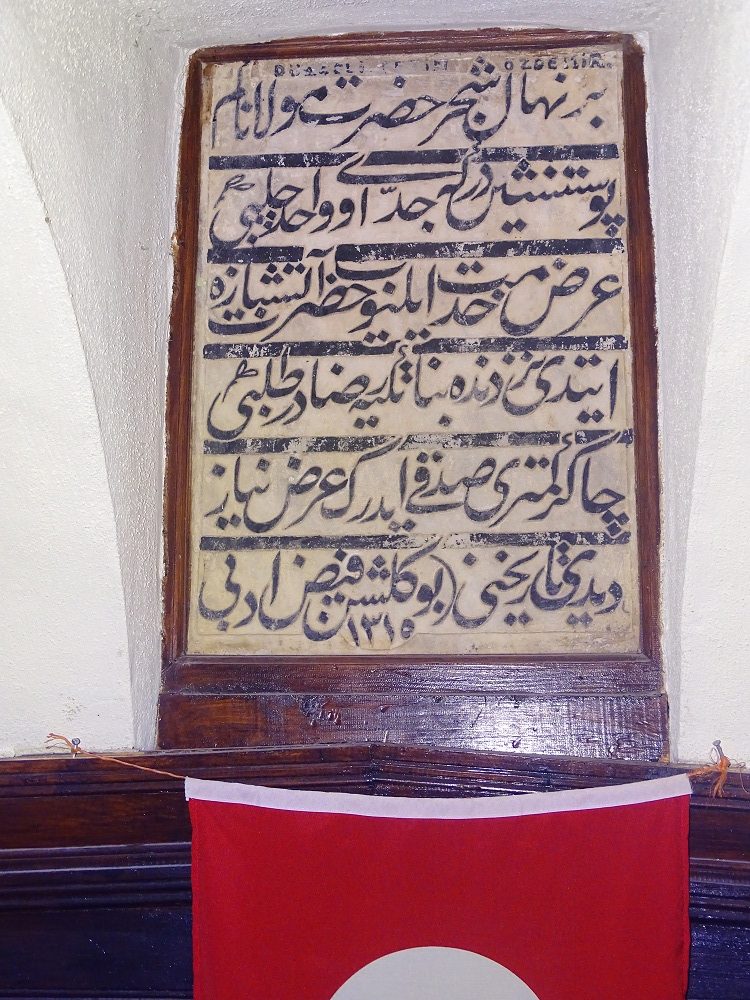 DÜZGELİ ÖZDEMİR
بر نهال شجر حضرت مولانا نام
پوستنشین درگه جدّ او واحد چلبی
عرض خدمت ایلیوب حضرت آتشبازه
ایتدی بزنده بنا تکیه رضا در طلبی
چاکر کمتری صدقی ایدرک عرض نیاز
دیدی تاریخنی (بو گلشن فیض ادبی
١٣١٥